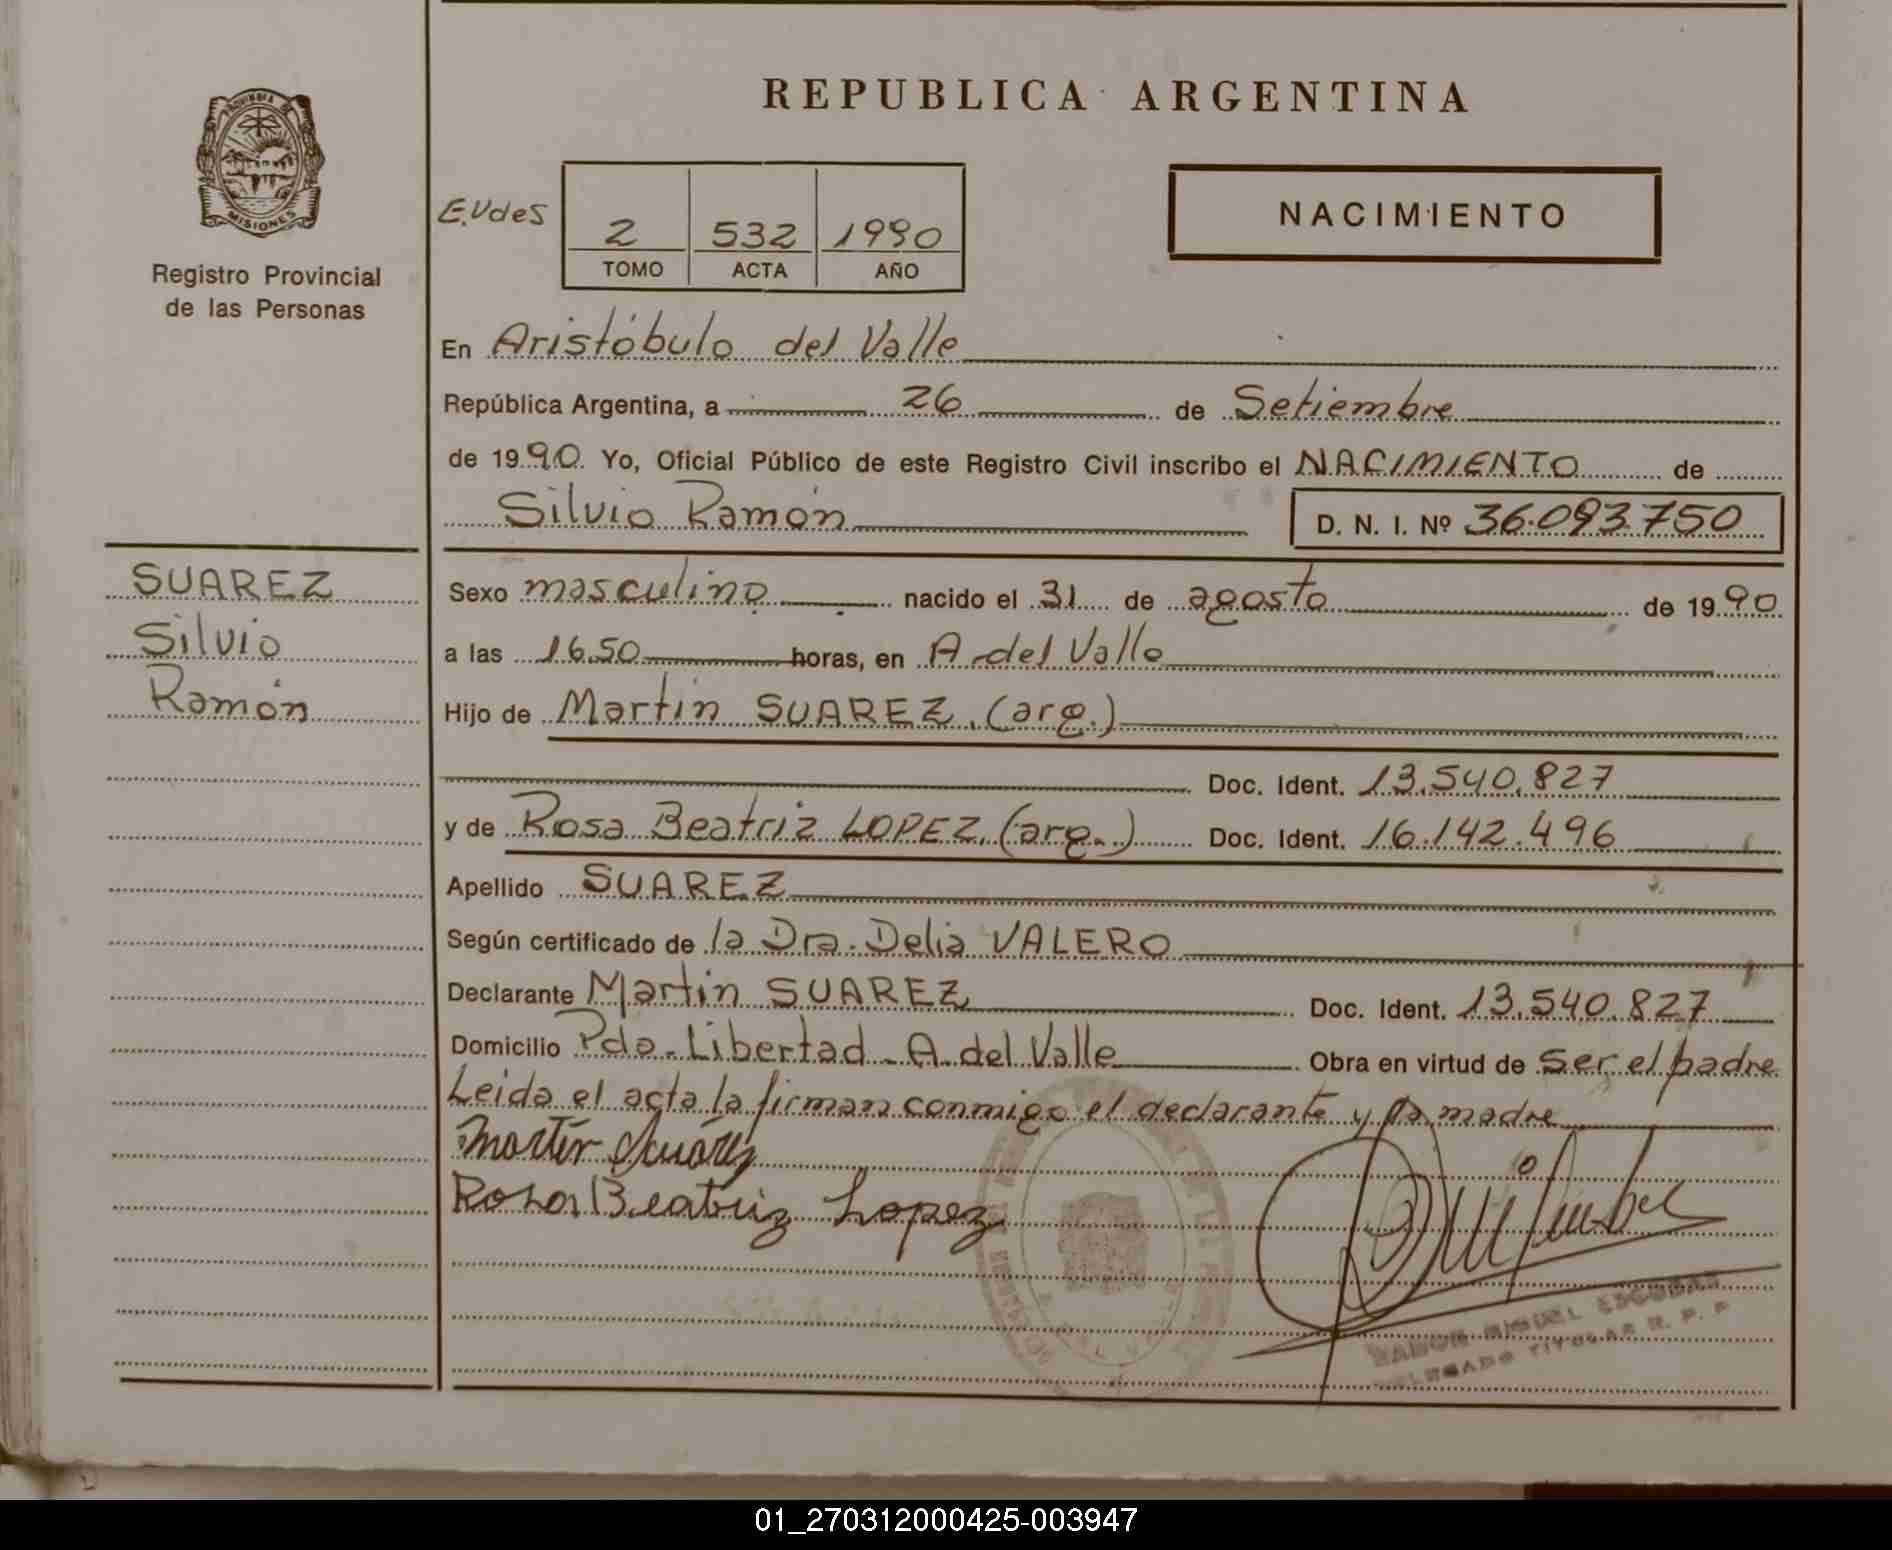 REPUBLICA ARGENTINA
PROVINCIA DE
MISIONES
Registro Provincial
de las Personas
E.Udes
2 532 1990
TOMO ACTA AÑO
NACIMIENTO
En Aristóbulo del Valle
República Argentina, a 26 de Setiembre
de 1990. Yo, Oficial Público de este Registro Civil inscribo el NACIMIENTO de
Silvio Ramón D. N. I. Nº 36.093.750
SUAREZ
Silvio
Ramón
Sexo masculino nacido el 31 de agosto de 1990
a las 16.50 horas, en A. del Valle
Hijo de Martin SUAREZ, (arg.)
Doc. Ident. 13.540.827
y de Rosa Beatriz LOPEZ, (arg.) Doc. Ident. 16.142.496
Apellido SUAREZ
Según certificado de la Dra. Delia VALERO
Declarante Martin SUAREZ Doc. Ident. 13.540.827
Domicilio Pdo. Libertad - A. del Valle Obra en virtud de ser el padre
Leida el acta la firman conmigo el declarante y la madre
Martín Suárez
Rosa Beatriz Lopez
RAMON MIGUEL ESCOBAR
DELEGADO TITULAR R. P. P.
01_270312000425-003947